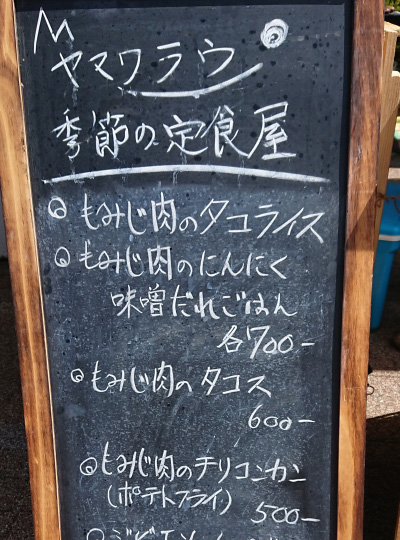 ヤマワラウ
季節の定食屋
もみじ肉のタコライス
もみじ肉のにんにく
味噌だれごはん
各700-
もみじ肉のタコス
600-
もみじ肉のチリコンカン
(ポテトフライ)
500-